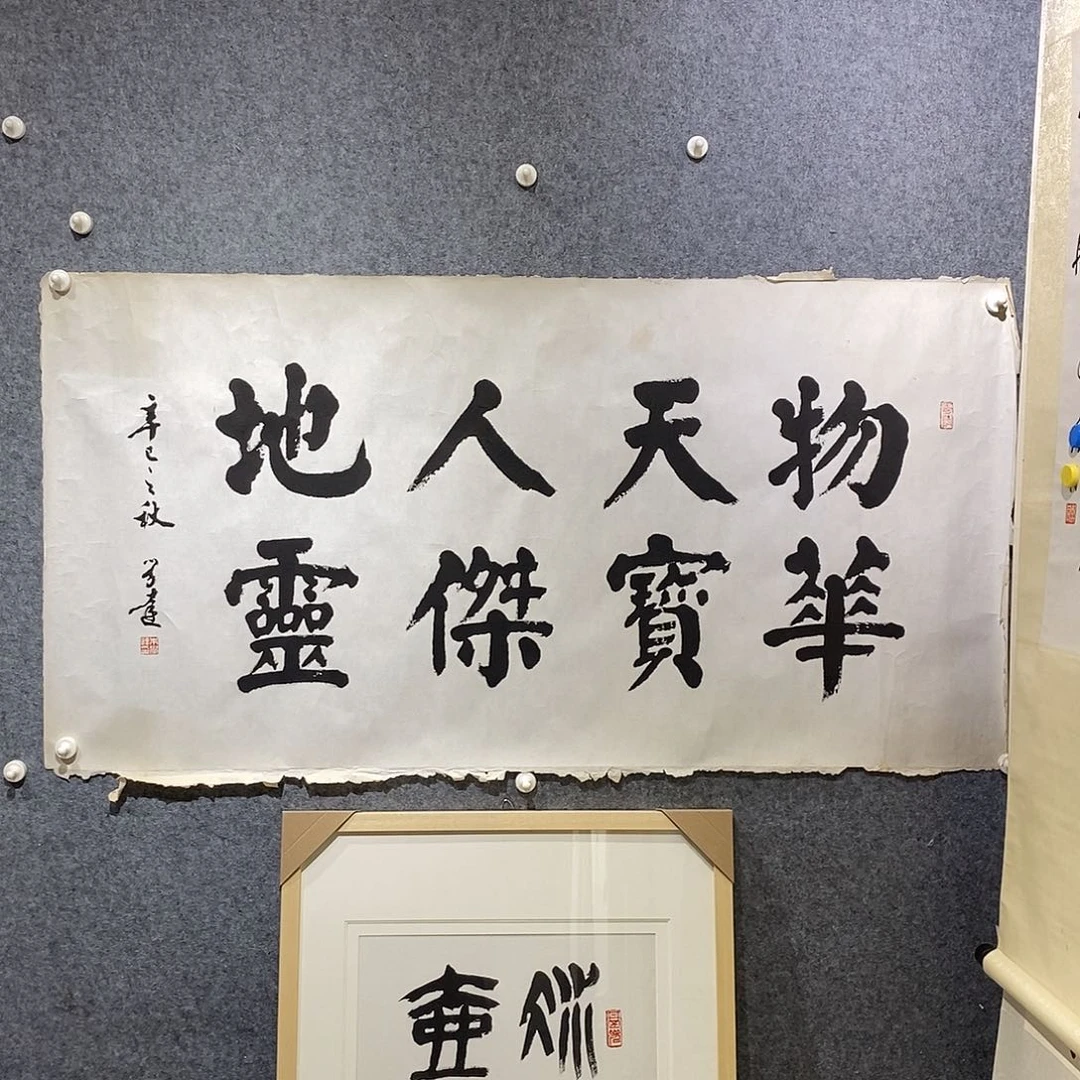 物華
天寶
人傑
地靈
辛巳之秋